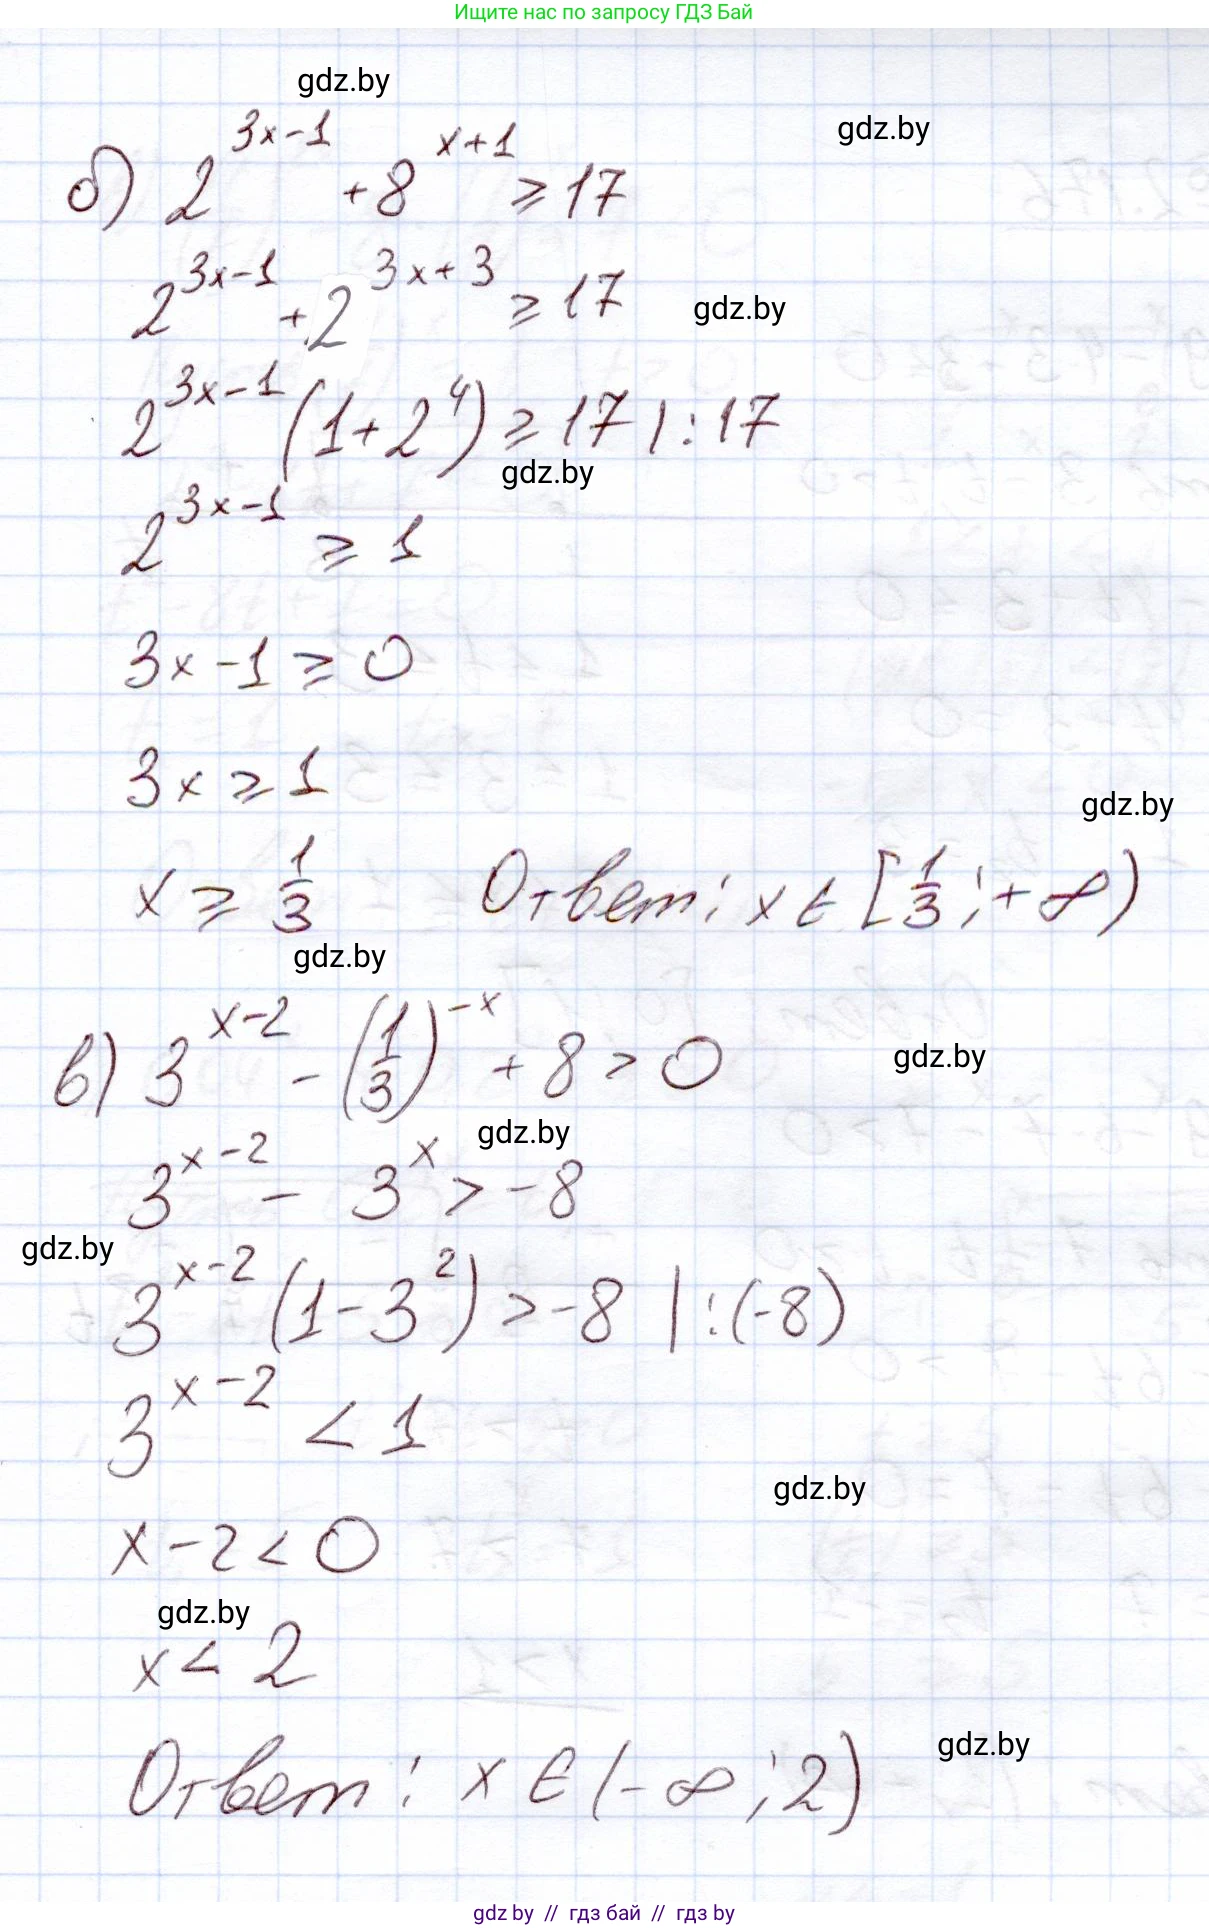 Ищите нас по запросу ГДЗ Бай
gdz.by
gdz.by
б) 2^(3x-1) + 8^(x+1) ≥ 17
2^(3x-1) + 2^(3x+3) ≥ 17
gdz.by
2^(3x-1) (1+2^4) ≥ 17 | : 17
gdz.by
2^(3x-1) ≥ 1
3x-1 ≥ 0
3x ≥ 1
gdz.by
x ≥ 1/3 Ответ: x ∈ [1/3; +∞)
gdz.by
в) 3^(x-2) - (1/3)^(-x) + 8 > 0
gdz.by
gdz.by
3^(x-2) - 3^x > -8
gdz.by
3^(x-2) (1-3^2) > -8 | : (-8)
3^(x-2) < 1
gdz.by
x-2 < 0
gdz.by
x < 2
gdz.by
Ответ: x ∈ (-∞; 2)
gdz by // гдз бай // gdz by